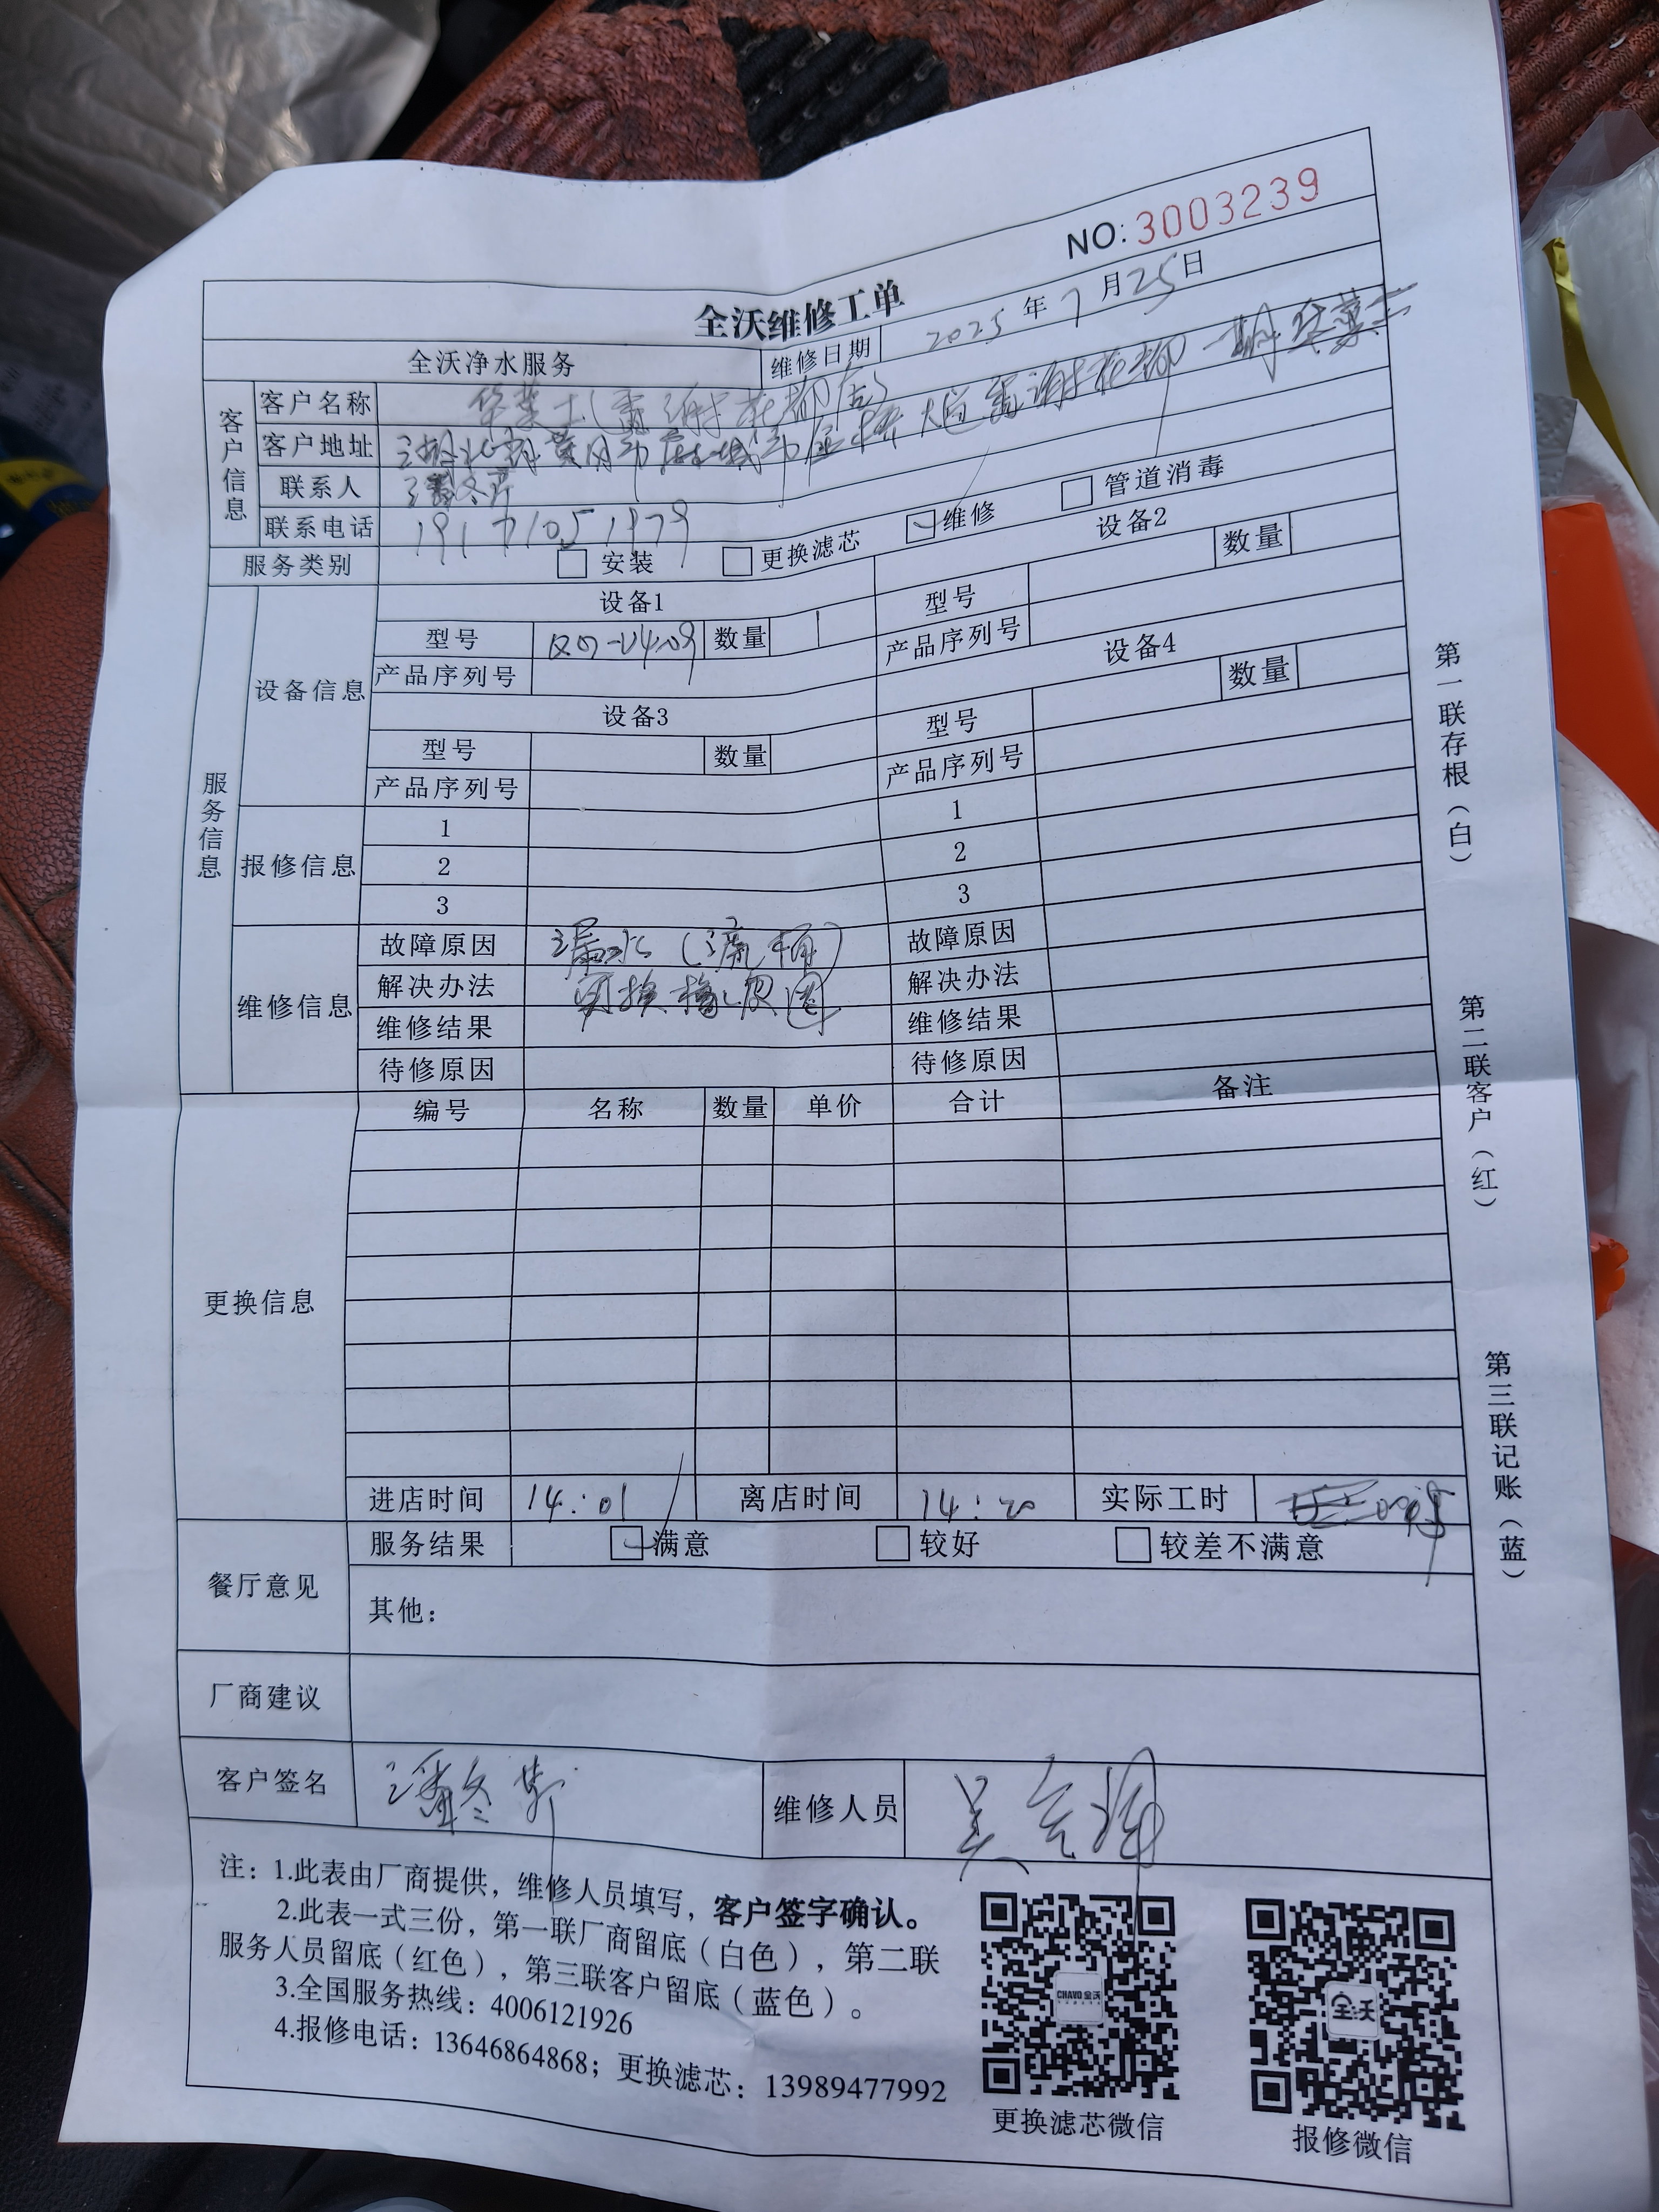 NO:3003239
全沃维修工单
全沃净水服务 维修日期 2025 年 7 月 25 日
客户信息
客户名称 华莱士(雷谢花都店)
客户地址 湖北省黄冈市麻城市金桥大道雷谢花都一期华莱士
联系人 潘冬
联系电话 19171051979
服务类别 安装 更换滤芯 维修 管道消毒
服务信息
设备信息
设备1 设备2
型号 数量 1 型号 数量
产品序列号 产品序列号
设备3 设备4
型号 数量 型号 数量
产品序列号 产品序列号
报修信息
1 1
2 2
3 3
维修信息
故障原因 漏水(滤桶) 故障原因
解决办法 更换橡皮圈 解决办法
维修结果 维修结果
待修原因 待修原因
更换信息
编号 名称 数量 单价 合计 备注
进店时间 14:01 离店时间 14:20 实际工时
餐厅意见
服务结果 满意 较好 较差不满意
其他:
厂商建议
客户签名 潘冬 维修人员 吴
注:1.此表由厂商提供,维修人员填写,客户签字确认。
2.此表一式三份,第一联厂商留底(白色),第二联
服务人员留底(红色),第三联客户留底(蓝色)。
3.全国服务热线:4006121926
4.报修电话:13646864868;更换滤芯:13989477992
CHAVO 全沃
更换滤芯微信
全沃
报修微信
第一联存根(白)
第二联客户(红)
第三联记账(蓝)